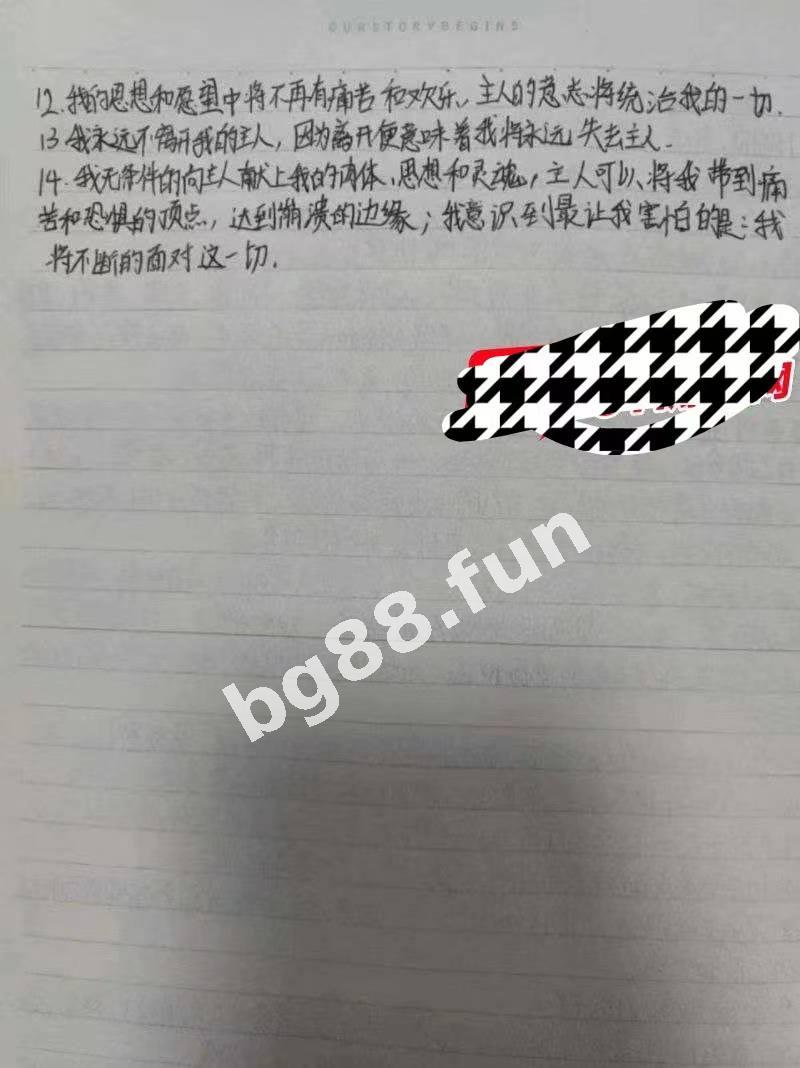 OURSTORYBEGINS
12.我的思想和愿望中将不再有痛苦和欢乐,主人的意志将统治我的一切.
13.我永远不离开我的主人,因为离开便意味着我将永远失去主人.
14.我无条件的向主人献上我的肉体、思想和灵魂,主人可以将我带到痛
苦和恐惧的顶点,达到崩溃的边缘;我意识到最让我害怕的是:我
将不断的面对这一切.
网
bg88.fun